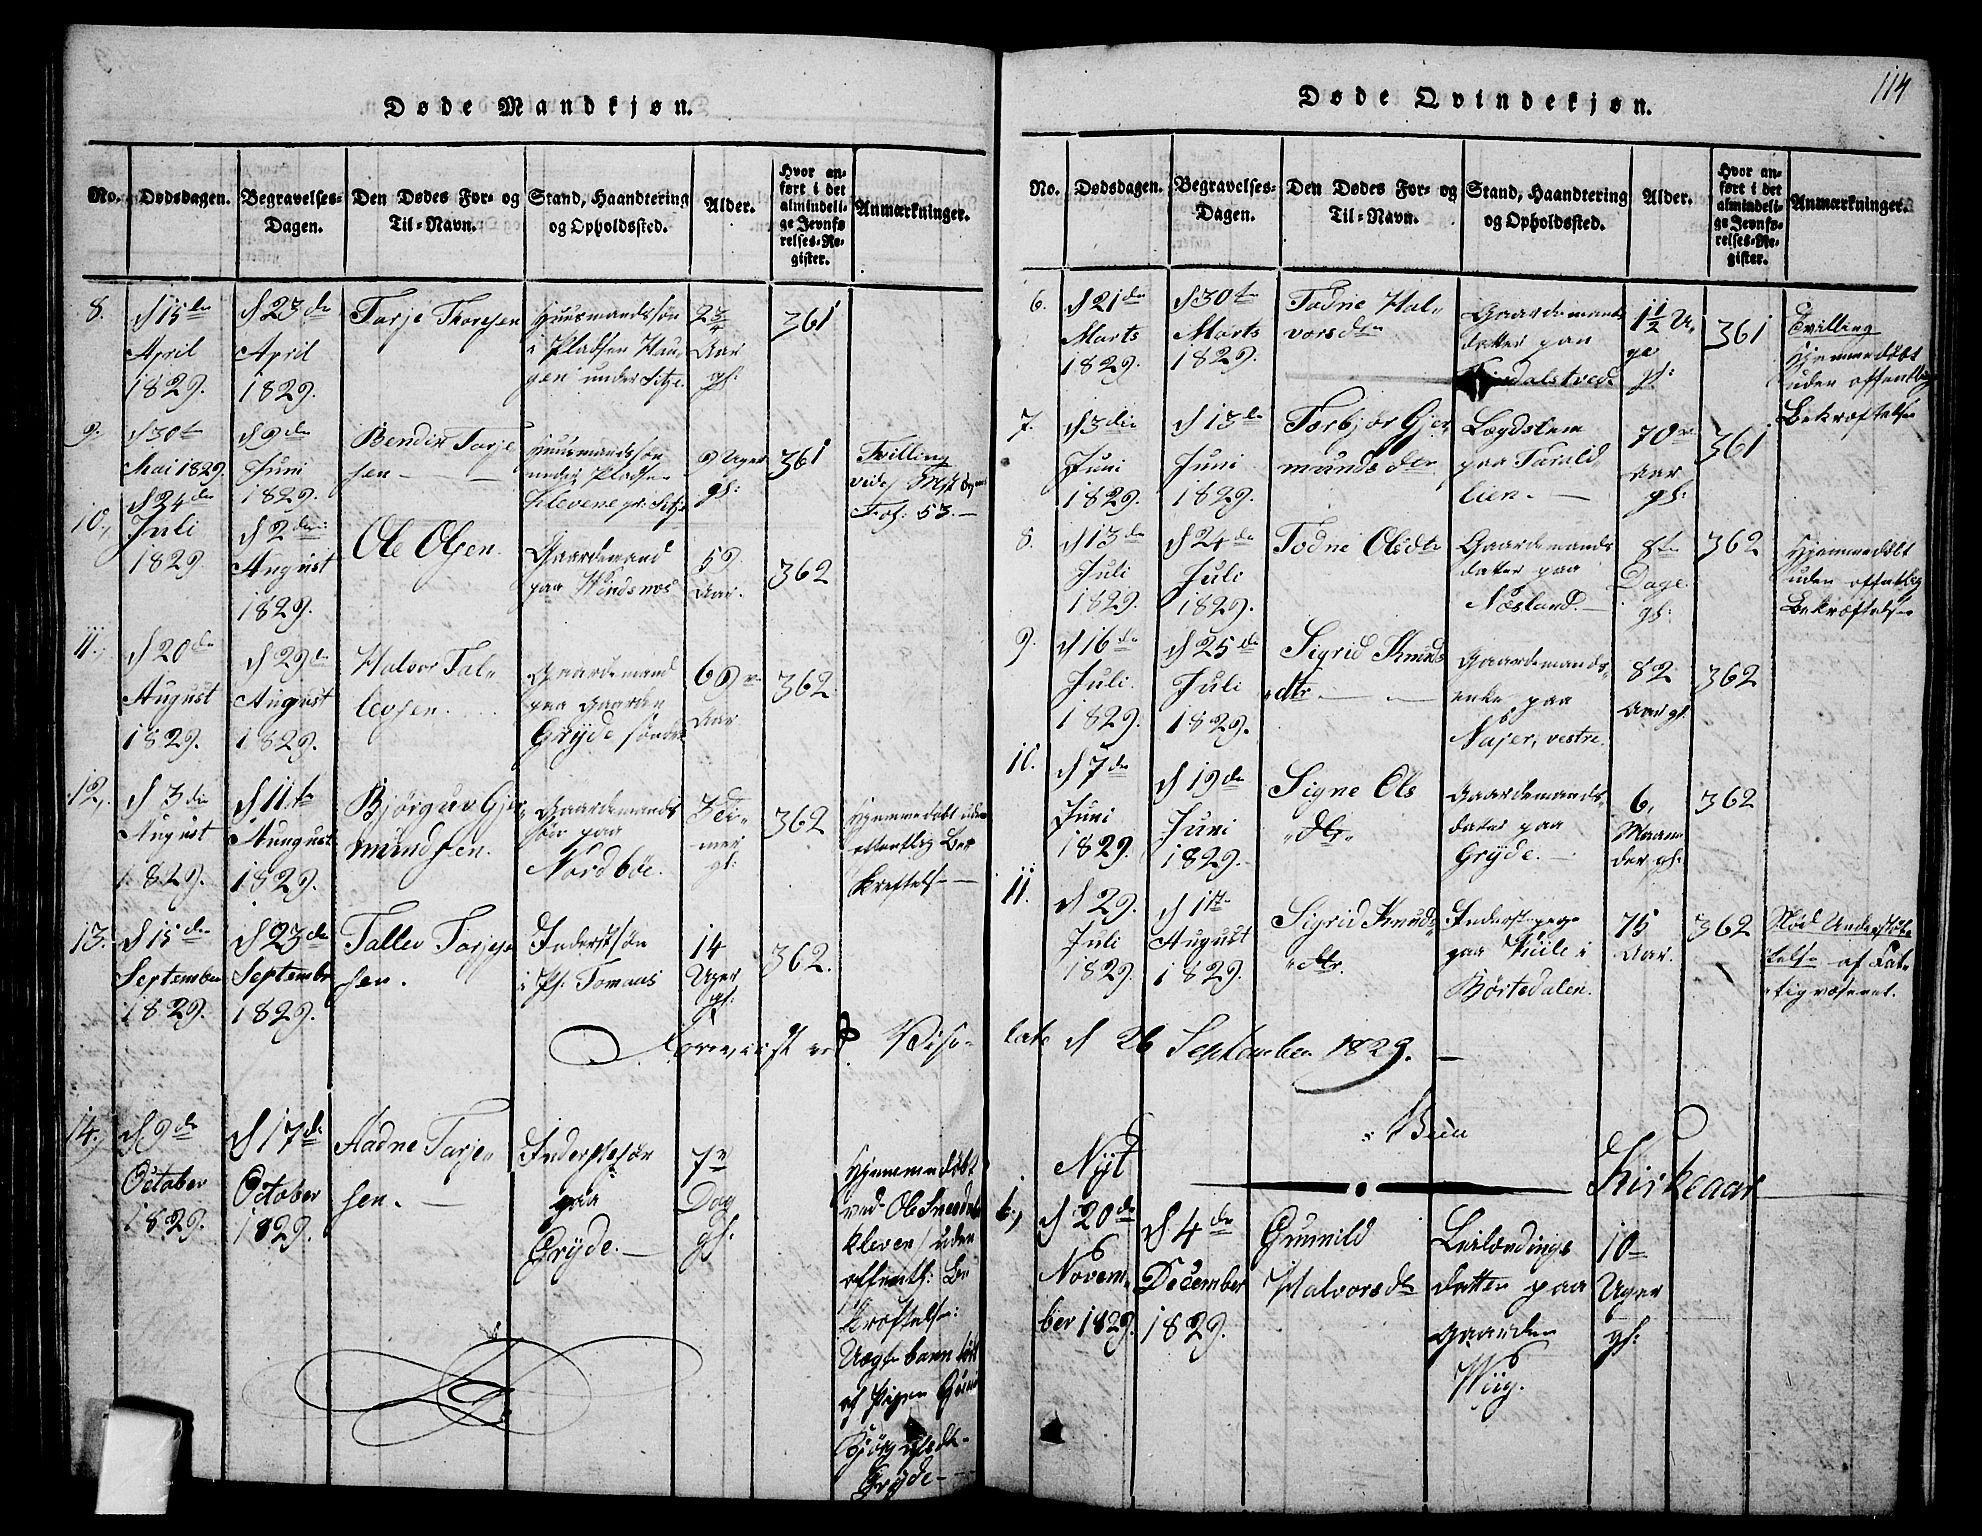 Døde Mandkjøn.
No. Dødsdagen. Begravelses-Dagen. Den Dødes For- og Til-Navn. Stand, Haandtering og Opholdssted. Alder. Hvor anført i det almindelige Jevnførelses-Register. Anmærkninger.
8.
d 15de
April
1829.
d 23de
April
1829.
Tarje Thorsen
Huusmandssøn
i Pladsen Hau-
gen under Sitje
Aar
gl:
361
9.
d 30te
Mai 1829.
d 9de
Juni
1829.
Bendix Tarje
sen
Huusmandssøn
under Pladsen
Klevene
9 Uger
gl:
361
Tvilling
Fol: 53.
10.
d 24de
Juli
1829
d 2den
August
1829.
Ole Olsen.
Gaardemand
paa Windsnæs
59
Aar.
362
11.
d 20de
August
1829.
d 29de
August
1829.
Halvor Tal-
levsen.
Gaardemand
paa Gaarden
Gryde søndre
69
Aar
362
12.
d 3de
August
1829.
d 11te
August
1829.
Bjørguv Gjer
mundsen.
Gaardemands
søn paa
Nordbøe.
3 Ti-
mer
gl:
362
Hjemmedøbt uden
offentlig Be-
kræftelse
13.
d 15de
September
1829.
d 23de
September
1829.
Tallev Tarje
sen.
Inderstsøn
i Pl. Tomaas
14
Uger
gl:
362.
Foreviist ved Visi-
14.
d 9de
October
1829.
d 17de
October
1829.
Aadne Tarje
sen.
Inderstesøn
paa
Gryde.
7
Dag
gl:
Hjemmedøbt
ved Ole
Kleven uden
offentl: Be
kræftelse:
Uægte barn
af Pigen
Gryde
114
Døde Qvindekjøn.
No. Dødsdagen. Begravelses-Dagen. Den Dødes For- og Til-Navn. Stand, Haandtering og Opholdssted. Alder. Hvor anført i det almindelige Jevnførelses-Register. Anmærkninger.
6.
d 21de
Marts
1829.
d 30te
Marts
1829.
Todne Hal-
vorsdtr
Gaardemands
datter paa
1½ U-
ge
gl:
361
Tvilling
Hjemmedøbt
uden offentlig
Bekræftelse
7.
d 3die
Juni
1829.
d 13de
Juni
1829.
Torbjør Gjer
mundsdtr
Lægdslem
paa Tarald-
lien.
70
Aar
gl:
361
8.
d 13de
Juli
1829.
d 24de
Juli
1829.
Todne Olsdtr
Gaardemands
dater paa
Næsland.
8te
Dage
gl:
362
Hjemmedøbt
uden offentlig
Bekræftelse
9.
d 16de
Juli.
1829.
d 25de
Juli
1829.
Sigrid Knuds
dtr.
Gaardemands-
enke paa
Najer, vestre.
82
Aar gl.
362
10.
d 7de
Juni
1829.
d 19de
Juni
1829.
Signe Ols
dtr
Gaardemands-
dater paa
Gryde.
6,
Maane
der gl:
362
11.
d 29.
Juli
1829.
d 1te
August
1829.
Sigrid Knuds
dtr.
Inderst
paa Kiile i
Børtedalen.
75
Aar.
362
Nød Understøt-
telse af Fat-
tigvæsenet.
tats d 26 September 1829.
Buu
Nyt Kirkeaar
1.,
d 20de
Novem-
ber 1829.
d 4de
December
1829.
Gunnild
Halvorsdtr
Leilændings
datter paa
Gaarden
Wiig.
10
Uger
gl: